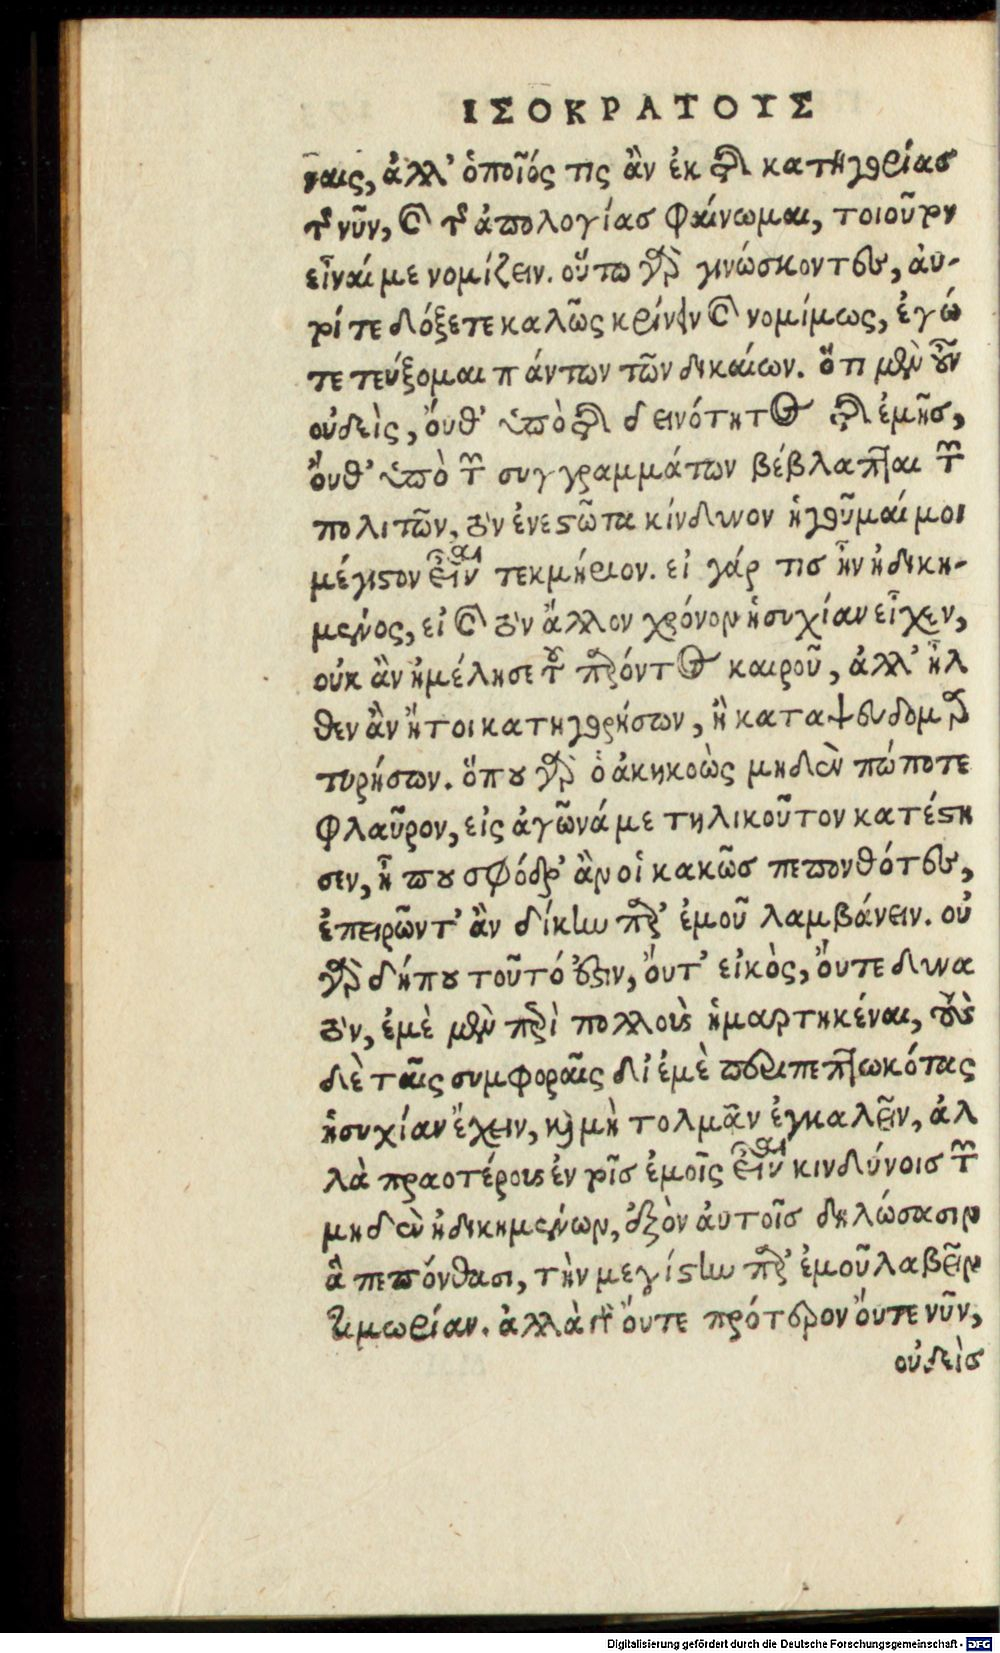 ΙΣΟΚΡΑΤΟΥΣ
ναις, ἀλλ' ὁποῖός τις ἂν ἐκ τῆς κατηγορίας
τῆς νῦν, καὶ τῆς ἀπολογίας φαίνωμαι, τοιοῦτον
εἶναί με νομίζειν. οὕτω γὰρ γινώσκοντες, αὐ-
τοί τε δόξετε καλῶς κρίνειν καὶ νομίμως, ἐγώ
τε τεύξομαι πάντων τῶν δικαίων. ὅτι μὲν οὖν
οὐδεὶς, οὔθ' ὑπὸ τῆς δεινότητος τῆς ἐμῆς,
οὔθ' ὑπὸ τῶν συγγραμμάτων βέβλαπται τῶν
πολιτῶν, τὸν ἐνεστῶτα κίνδυνον ἡγοῦμαί μοι
μέγιστον εἶναι τεκμήριον. εἰ γάρ τις ἦν ἠδικη-
μένος, εἰ καὶ τὸν ἄλλον χρόνον ἡσυχίαν εἶχεν,
οὐκ ἂν ἠμέλησε τοῦ παρόντος καιροῦ, ἀλλ' ἦλ
θεν ἂν ἤτοι κατηγορήσων, ἢ καταψευδομαρ
τυρήσων. ὅπου γὰρ ὁ ἀκηκοὼς μηδὲν πώποτε
φλαῦρον, εἰς ἀγῶνά με τηλικοῦτον κατέστη
σεν, ἦ που σφόδρ' ἂν οἱ κακῶς πεπονθότες,
ἐπειρῶντ' ἂν δίκην παρ' ἐμοῦ λαμβάνειν. οὐ
γὰρ δήπου τοῦτό ἐστιν, οὔτ' εἰκὸς, οὔτε δυνα
τὸν, ἐμὲ μὲν περὶ πολλοὺς ἡμαρτηκέναι, τοὺς
δὲ ταῖς συμφοραῖς δι' ἐμὲ περιπεπτωκότας
ἡσυχίαν ἔχειν, καὶ μὴ τολμᾶν ἐγκαλεῖν, ἀλ
λὰ πραοτέρους ἐν τοῖς ἐμοῖς εἶναι κινδύνοις τῶν
μηδὲν ἠδικημένων, ἐξὸν αὐτοῖς δηλώσασιν
ἃ πεπόνθασι, τὴν μεγίστην παρ' ἐμοῦ λαβεῖν
τιμωρίαν. ἀλλὰ γὰρ οὔτε πρότερον οὔτε νῦν,
οὐδεὶς
Digitalisierung gefördert durch die Deutsche Forschungsgemeinschaft - DFG